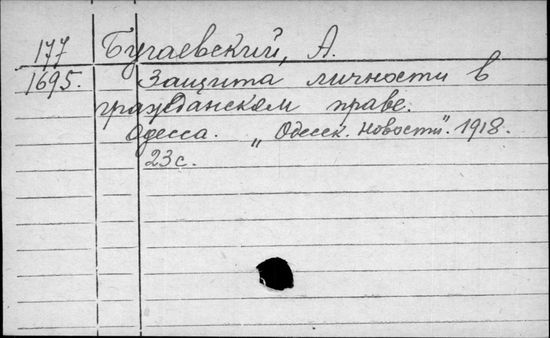 177 Бугаевский, А.
1695. Защита личности в
гражданском праве.
Одесса. „Одесск. Новости". 1918.
23с.